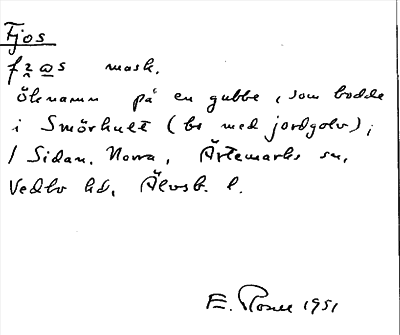 Fjos
mask.
öknamn på en gubbe, som bodde
i Smörhult (bs med jordgolv);
/ Sidan. Norra, Ärtemarks sn,
Vedbo hd, Älvsb. l.
E. 1951